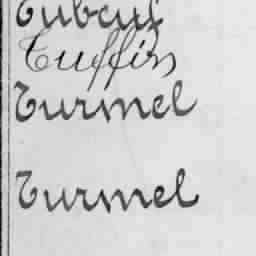 Tubeuf
Tuffin
Turmel
Turmel